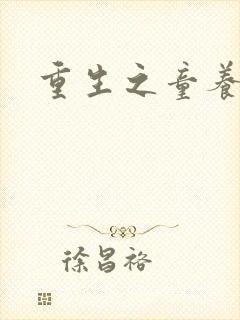 重生之童养
徐昌裕